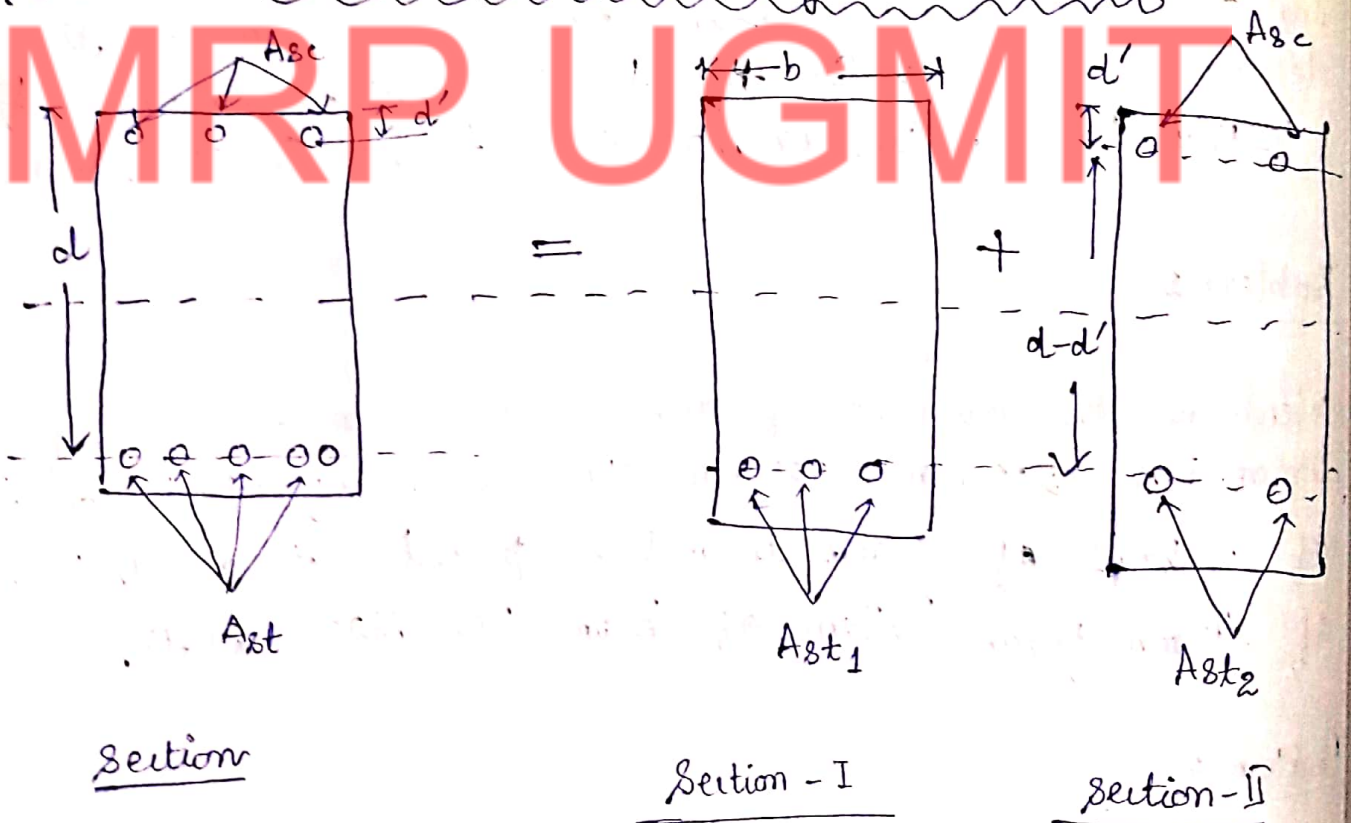 MRP UGMIT
Asc
d'
b
d'
Asc
d
=
+
d-d'
Ast
Ast1
Ast2
Section
Section - I
Section - II